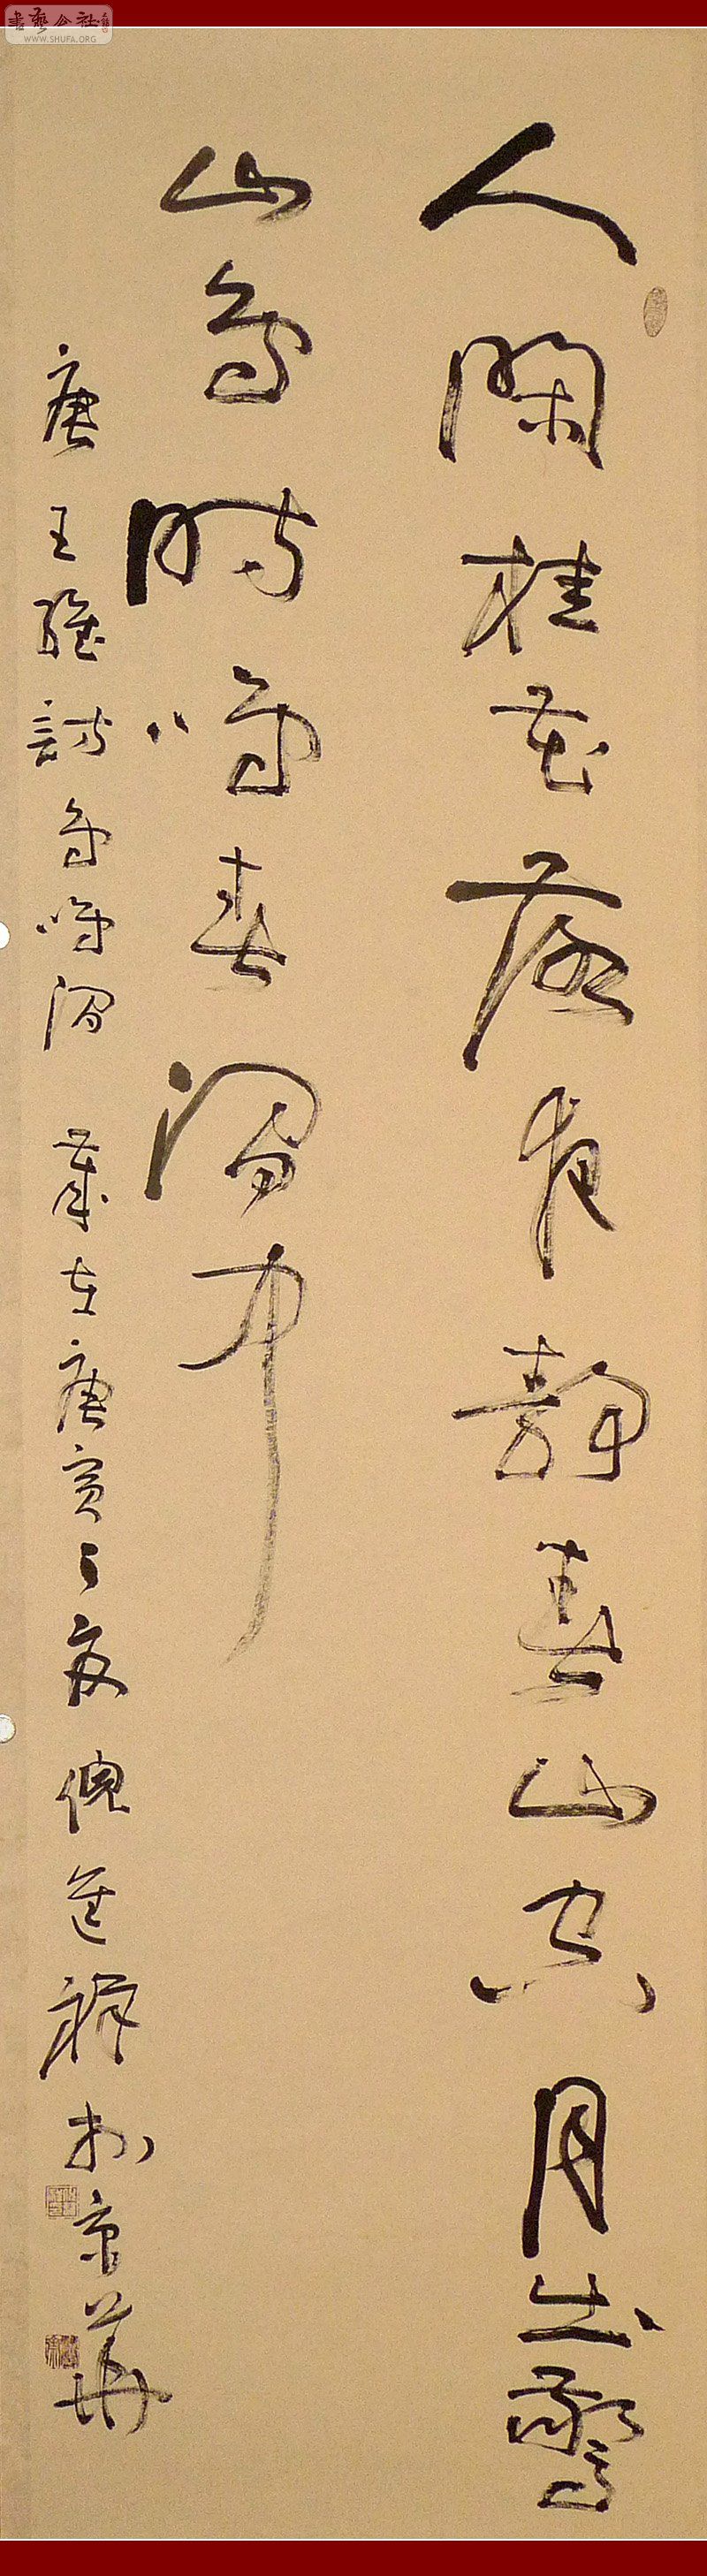 書藝公社
WWW.SHUFA.ORG
人閑桂花落夜靜春山空月出驚
山鳥時鳴春澗中
唐王維詩鳥鳴澗 歲在庚寅之夜倪進祥於京華